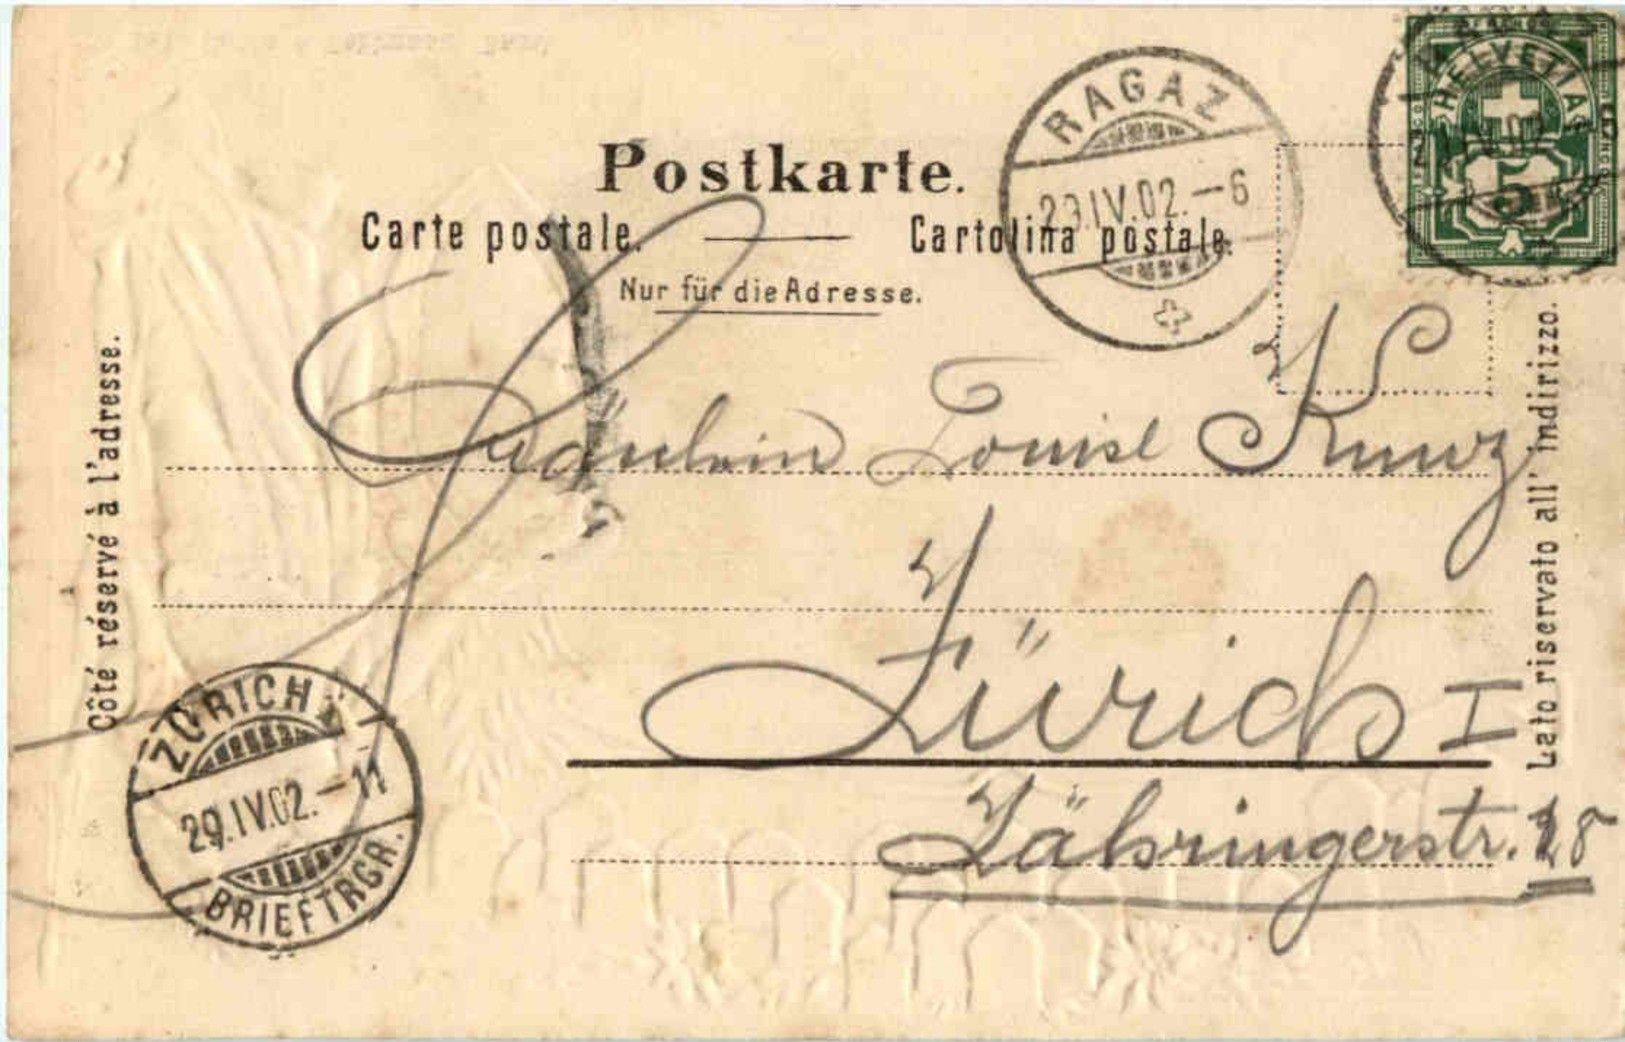 Postkarte.
Carte postale. Cartolina postale.
Nur für die Adresse.
RAGAZ
29.IV.02.-6
HELVETIA
5
Côté réservé à l'adresse.
Lato riservato all' indirizzo.
Fräulein Louise Kunz
Zürich I
Zähringerstr. 28
ZÜRICH 1
29.IV.02.-11
BRIEFTRGR.